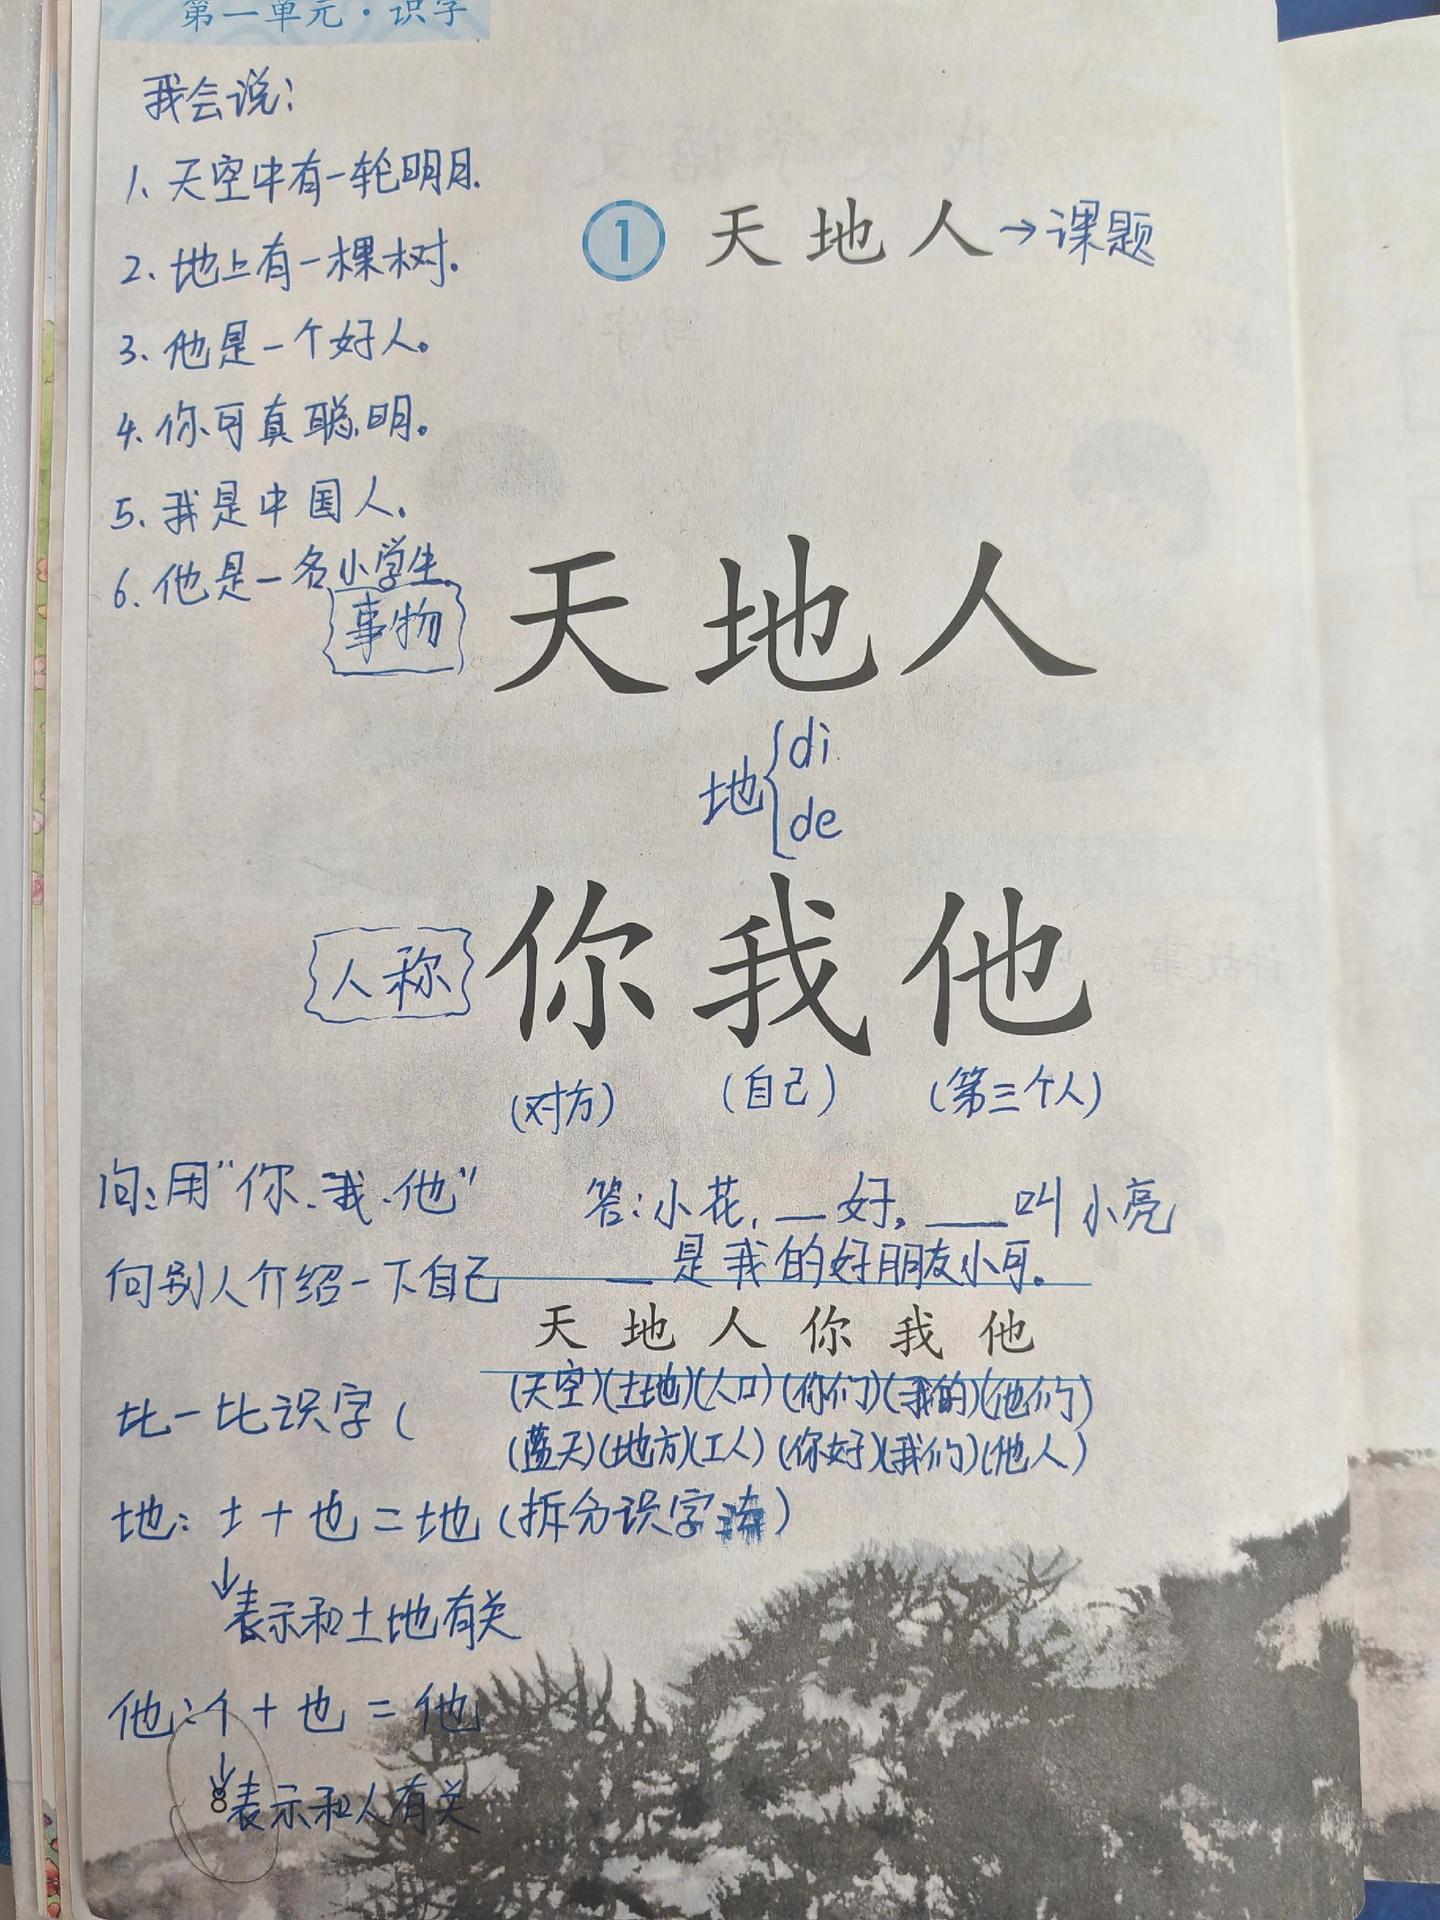 第一单元·识字
我会说：
1、天空中有一轮明月.
2、地上有一棵树.
3、他是一个好人。
4、你可真聪明。
5、我是中国人.
6、他是一名小学生.
1 天地人→课题
事物 天地人
地{di
de
人称 你我他
(对方) (自己) (第三个人)
问：用“你、我、他”
向别人介绍一下自己
答：小花, __好, ___叫小亮
__是我的好朋友小可。
天 地 人 你 我 他
(天空)(土地)(人口)(你们)(我的)(他们)
(蓝天)(地方)(工人)(你好)(我们)(他人)
比一比识字(
地：土+也=地(拆分识字)
↓表示和土地有关
他：亻+也=他
↓表示和人有关
8